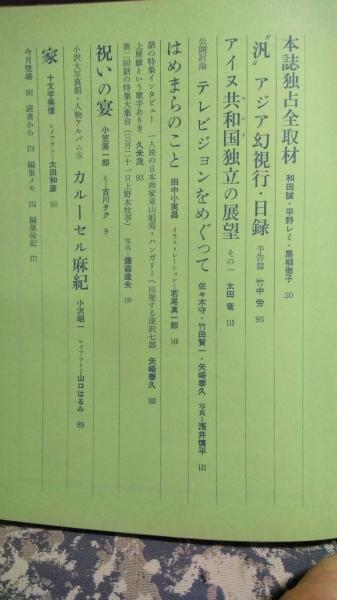 本誌独占全取材 和田誠・平野レミ・黒柳徹子 20
〝汎〟アジア幻視行・日録 予告篇 竹中労 93
アイヌ共和国独立の展望 その一 太田竜 112
公開討論 テレビジョンをめぐって 佐々木守・竹田賢一・矢崎泰久 写真・浅井慎平 131
はめまらのこと 田中小実昌 イラストレーション・若尾真一郎 148
話の特集インタビュー 一人旅の日本画家東山魁夷・ハンガリーへ出発する深沢七郎 矢崎泰久 162
上原敏という歌手ありき 久米茂 93
第二回話の特集大集合(三月二十一日上野本牧亭) 写真・藤森達夫
祝いの宴 小笠原一郎 え・古川タク 9
小沢大写真館・人物アルバム⑤ カルーセル麻紀 小沢昭一 レイアウト・山口はるみ 89
家 十文字美信 レイアウト・太田和彦
今月登場 読者から 174 編集メモ 174 編集後記 177